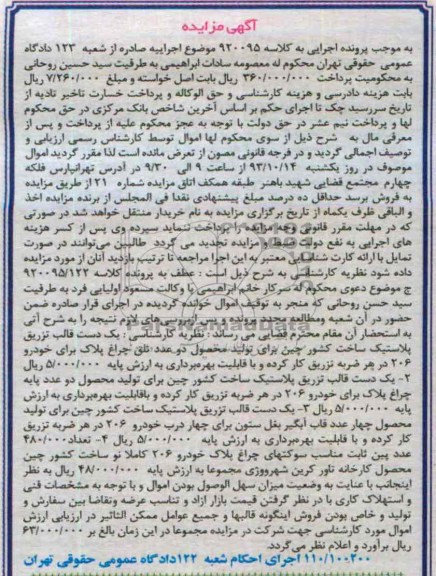 آگهی مزایده
به موجب پرونده اجرایی به کلاسه ۹۲۰۰۹۵ موضوع اجراییه صادره از شعبه ۱۲۳ دادگاه
عمومی حقوقی تهران محکوم له معصومه سادات ابراهیمی به طرفیت سید حسین روحانی
به محکومیت پرداخت ۳۶۰/۰۰۰/۰۰۰ ریال بابت اصل خواسته و مبلغ ۷/۲۶۰/۰۰۰ ریال
بابت هزینه دادرسی و هزینه کارشناسی و حق الوکاله و پرداخت خسارت تاخیر تادیه از
تاریخ سررسید چک تا اجرای حکم بر اساس آخرین شاخص بانک مرکزی در حق محکوم
لها و پرداخت نیم عشر در حق دولت با توجه به عجز محکوم علیه از پرداخت و پس از
معرفی مال به شرح ذیل از سوی محکوم لها اموال توسط کارشناس رسمی ارزیابی و
توصیف اجمالی گردید و در فرجه قانونی مصون از تعرض مانده است لذا مقرر گردید اموال
موصوف در روز یکشنبه ۹۳/۱۰/۱۴ از ساعت ۹ الی ۹/۳۰ در آدرس تهرانپارس فلکه
چهارم مجتمع قضایی شهید باهنر طبقه همکف اتاق مزایده شماره ۲۱ از طریق مزایده
به فروش برسد حداقل ده درصد مبلغ پیشنهادی نقدا فی المجلس از برنده مزایده اخذ
و الباقی ظرف یکماه از تاریخ برگزاری مزایده به نام خریدار منتقل خواهد شد در صورتی
که در مهلت مقرر قانونی وجه مزایده را پرداخت ننماید سپرده وی پس از کسر هزینه
های اجرایی به نفع دولت ضبط و مزایده تجدید می گردد طالبین می‌توانند در صورت
تمایل با ارائه کارت شناسایی معتبر به این اجرا مراجعه تا ترتیب بازدید آنان از مورد مزایده
داده شود نظریه کارشناس به شرح ذیل است : عطف به پرونده کلاسه ۹۲۰۰۹۵/۱۲۲
ج موضوع دعوی محکوم له سرکار خانم ابراهیمی با وکالت مسعود اولیایی فرد به طرفیت
سید حسن روحانی که منجر به توقیف اموال خوانده گردیده در اجرای قرار صادره ضمن
حضور در آن شعبه ومطالعه مجدد پرونده و بررسی‌های لازم نتیجه را به شرح آتی
به استحضار آن مقام محترم قضایی می رساند : نظریه کارشناسی : یک دست قالب تزریق
پلاستیک ساخت کشور چین برای تولید محصول دو عدد تلق چراغ پلاک برای خودرو
۲۰۶ در هر ضربه تزریق کار کرده و با قابلیت بهره‌برداری به ارزش پایه ۵/۰۰۰/۰۰۰ ریال
۲- یک دست قالب تزریق پلاستیک ساخت کشور چین برای تولید محصول دو عدد پایه
چراغ پلاک برای خودرو ۲۰۶ در هر ضربه تزریق کار کرده و باقابلیت بهره‌برداری به ارزش
پایه ۵/۰۰۰/۰۰۰ ریال ۳- یک دست قالب تزریق پلاستیک ساخت کشور چین برای تولید
محصول چهار عدد قاب آبگیر بغل ستون برای چهار درب خودرو ۲۰۶ در هر ضربه تزریق
کار کرده و با قابلیت بهره‌برداری به ارزش پایه ۵/۰۰۰/۰۰۰ ریال ۴- تعداد ۴۸۰/۰۰۰
عدد پین ثابت مناسب سوکتهای چراغ پلاک خودرو ۲۰۶ کاملا نو ساخت کشور چین
محصول کارخانه تاور کرین شهرووزی مجموعا به ارزش پایه ۴۸/۰۰۰/۰۰۰ ریال به نظر
اینجانب با عنایت به وضعیت میزان سهل الوصول بودن اموال و با توجه به مشخصات فنی
و استهلاک کاری با در نظر گرفتن قیمت بازار ازاد و تناسب عرضه وتقاضا بین سفارش و
تولید و خاص بودن فروش اینگونه قالبها و جمیع عوامل ممکن التاثیر در ارزیابی ارزش
اموال مورد کارشناسی جهت شرکت در مزایده مجموعا در این زمان بالغ بر ۶۳/۰۰۰/۰۰۰
ریال برآورد و اعلام نظر می‌گردد.
۱۱۰/۱۰۰۲۰۰ اجرای احکام شعبه ۱۲۲دادگاه عمومی حقوقی تهران